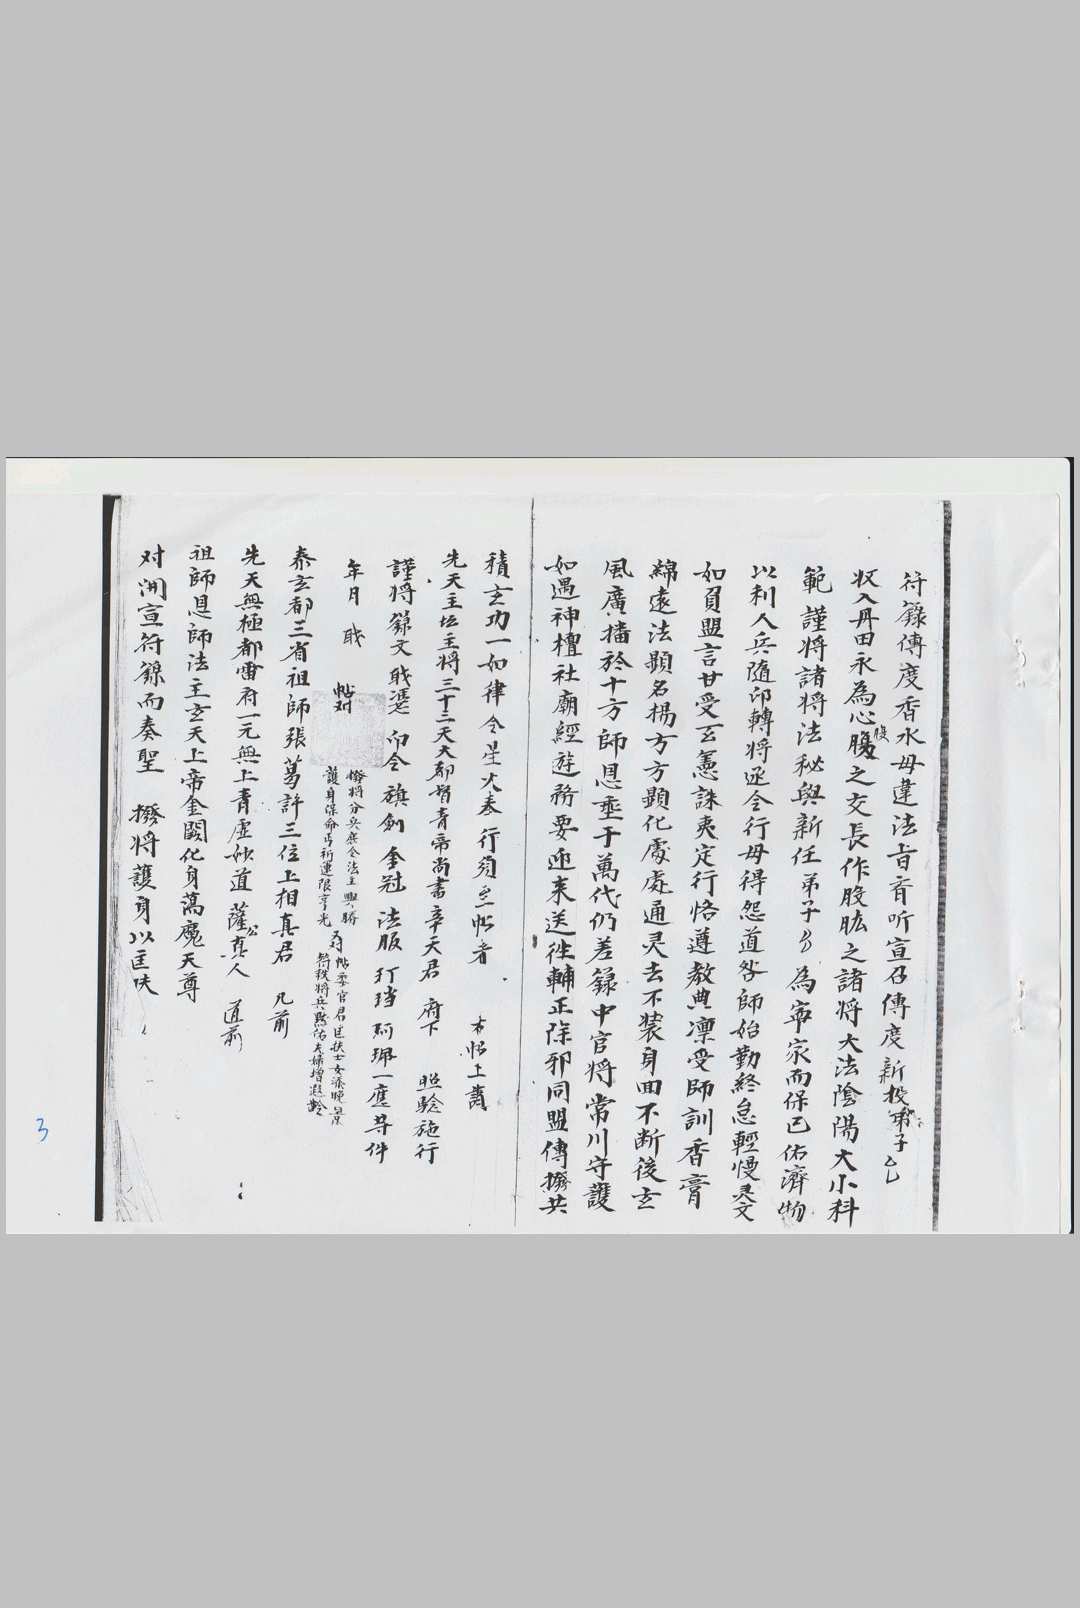 符籙傳度香水毋違法旨音听宣召傳度新投弟子乙
收入丹田永為心腹之交長作股肱之諸將大法陰陽大小科
腹
範謹將諸將法秘與新任弟子 為寧家而保己佑濟物
以利人兵隨印轉將逐令行毋得怨道咎師始勤終怠輕慢灵文
如負盟言甘受玄憲誅夷定行恪遵教典凛受師訓香膏
綿遠法顯名揚方方顯化處處通灵去不装身回不断後玄
風廣播於十方師恩垂于萬代仍差籙中官将常川守護
如遇神壇社廟經遊務要迎来送往輔正除邪同盟傳撥共
積玄功一如律令星火奉行須至帖者
右帖上請
先天主坛主將三十三天大都督青帝尚書辛天君 府下 照騐施行
謹将籙文職凴 印令 旗劍 金冠 法服 玎璫 珂珮一應等件
年月 職
帖对
撥将分兵麾令法主興勝
護身保命局祈運限亨光
为帖委官君匡扶士女添晚景
符秩将兵黙佑夫婦增遐齡
泰玄都三省祖師張葛許三位上相真君 几前
先天無極都雷府一元無上青虚妙道薩真人 道前
公
祖師恩師法主玄天上帝金闕化身蕩魔天尊
对開宣符籙而奏聖 撥将護身以匡扶
3